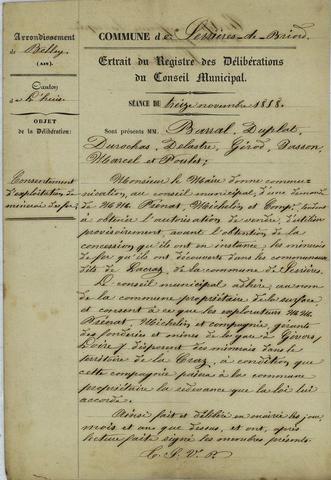 Arrondissement
de Belley
(AIN)
Canton
de Lhuis
OBJET
de la Délibération:
Consentement
d'exploitation de
minerai de fer.
COMMUNE de Serrières-de-Briord
Extrait du Registre des Délibérations
du Conseil Municipal.
SÉANCE DU treize novembre 1858.
Sont présents MM. Barral, Duplat,
Durochat, Delastre, Gérod, Basson,
Marcel et
Monsieur le Maire donne commu-
nication, au conseil municipal, d'une demande
de MM. Frénat, Michelin et Comp.ie, tendant
à obtenir l'autorisation de vendre, d'utiliser
provisoirement, avant l'obtention de la
concession qu'ils ont en instance, les minerais
de fer qu'ils ont découverts dans les communaux
dits de de la commune de Serrières.
Le conseil municipal adhère, au nom
de la commune propriétaire de la surface
et consent à ce que les explorateurs MM.
Frénat, Michelin et compagnie, gérants
des fonderies et mines de la gare, à Givors,
Loire, y disposent des minerais dans le
territoire de la Craz, à condition que
cette compagnie paiera à la commune
propriétaire la redevance que la loi lui
accorde.
Ainsi fait et délibéré en mairie les jour,
mois et an que dessus, et ont, après
lecture faite signé les membres présents.
T. S. V. P.